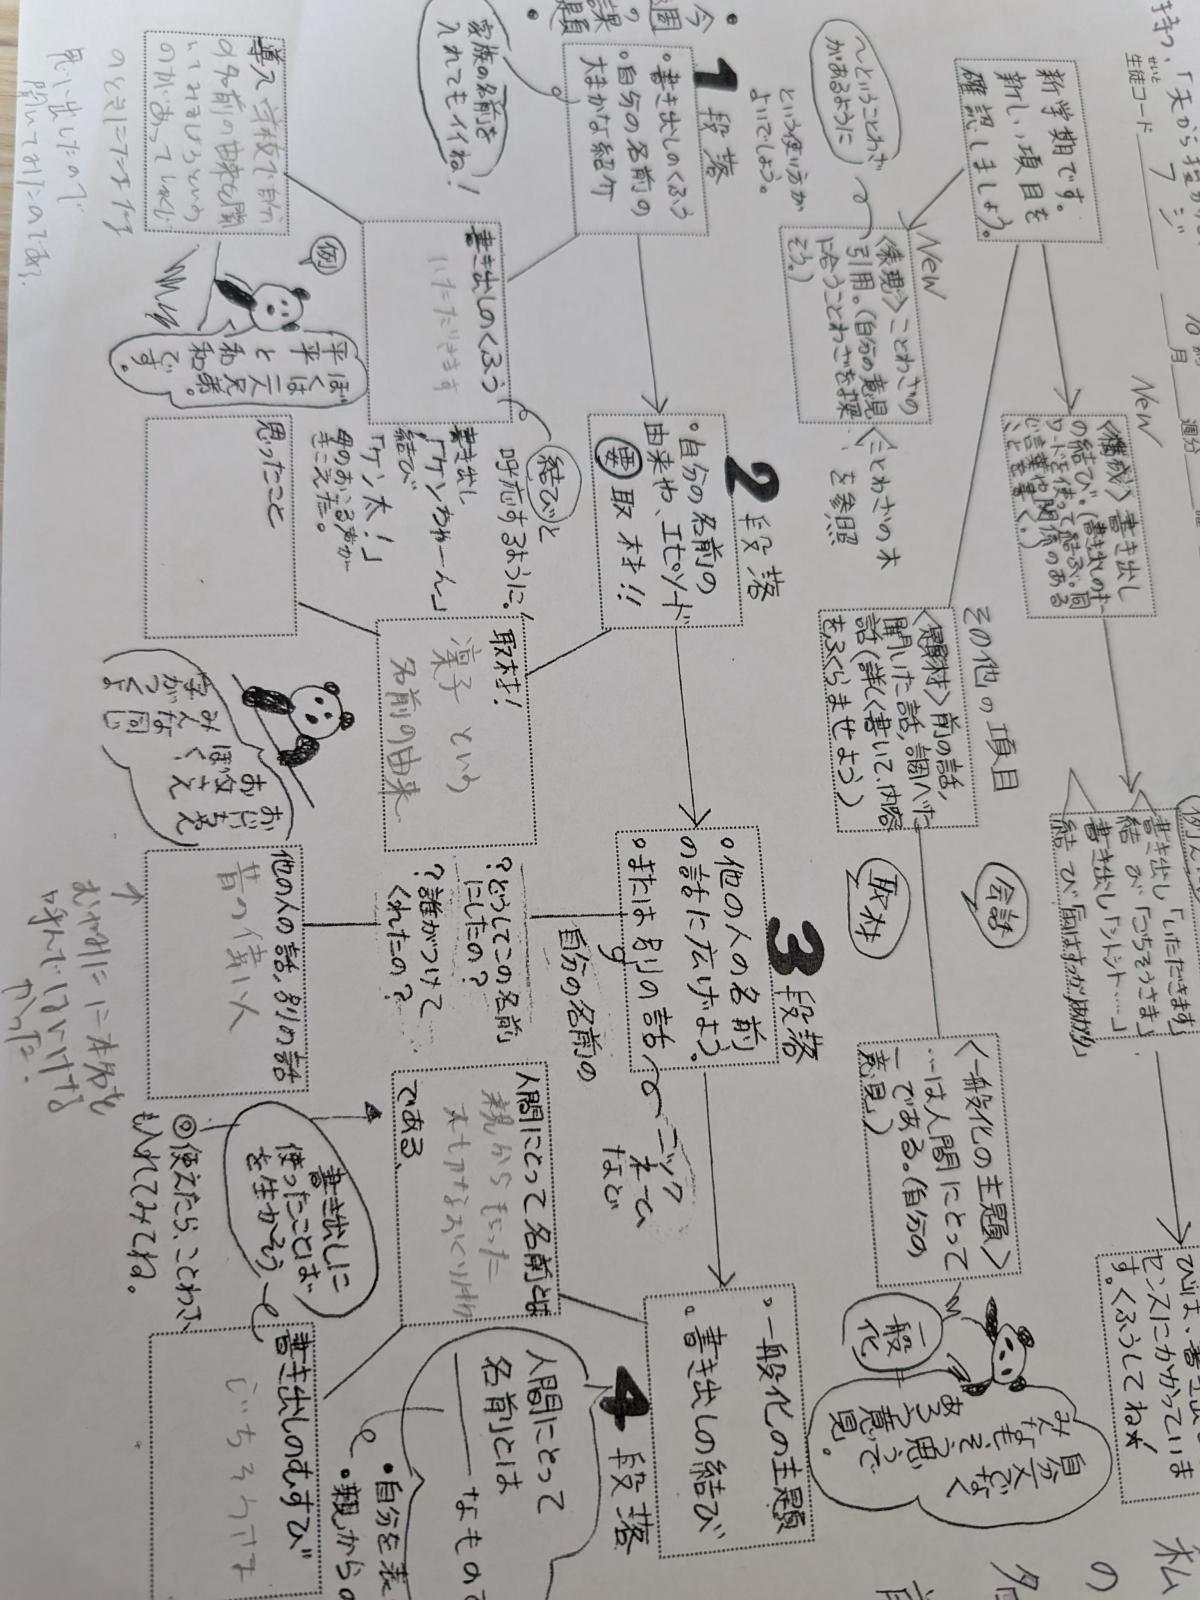 持つ、「天から授か
生徒コード フジ
せいと
10月 週分
新学期です。
新しい項目を
確認しましょう。
New
〈表現〉ことわざの
引用。(自分の意見
に合うことわざを探
そう。)
〈ことわざの本
を参照
〜ということわざ
があるように
という使い方が
よいでしょう。
New
〈構成〉書き出し
の結び。(書き出しのキー
ワードを使って結ぶ。同
じ言葉や関係のある
ことを書く。)
書き出し「いただきます」
結び「ごちそうさま」
書き出し「トントン……」
結び
センスにかかっていま
す。くふうしてね☆
その他の項目
〈題材〉前の話、
聞いた話、調べた
話(詳しく書いて、内容
をふくらませよう)
取材
会話
〈一般化の主題〉
…は人間にとって
一である。(自分の
意見)
一般化
自分だけでなく
みんなもそう思う
であろう意見。
今週の課題
1段落
・書き出しのくふう
・自分の名前の
大まかな紹介
家族の名前を
入れてもイイね!
2段落
・自分の名前の
由来や、エピソード
要取材!!
3段落
・他の人の名前
の話に広げよう。
・または別の話
ニックネームなど
4段落
・一般化の主題
・書き出しの結び
書き出しのくふう
いただきます
結びと
呼応するように。
書き出し
「ケンちゃーん」
結び
「ケン太!」
母のおこる声が
きこえた。
取材!
凜子という
名前の由来
自分の名前の
?どうしてこの名前
にしたの?
?誰がつけて
くれたの?
人間にとって名前とは
親からもらった
大切なおくり物
である。
人間にとって
名前とは
なもので
・自分を表
・親からの
導入 学校で自分
の名前の由来を聞
思い出したので
聞いてみたのである。
例
ぼくは二人兄弟。
平和です。
思ったこと
みんな同じ
字がつくよ
他の人の話、別の話
昔の偉人
むやみに本名を
呼んではいけな
かった。
書き出しに
使ったことば
を生かそう
◎使えたら、ことわざ
も入れてみてね。
書き出しのむすび
ごちそうさま
私
の
名
前